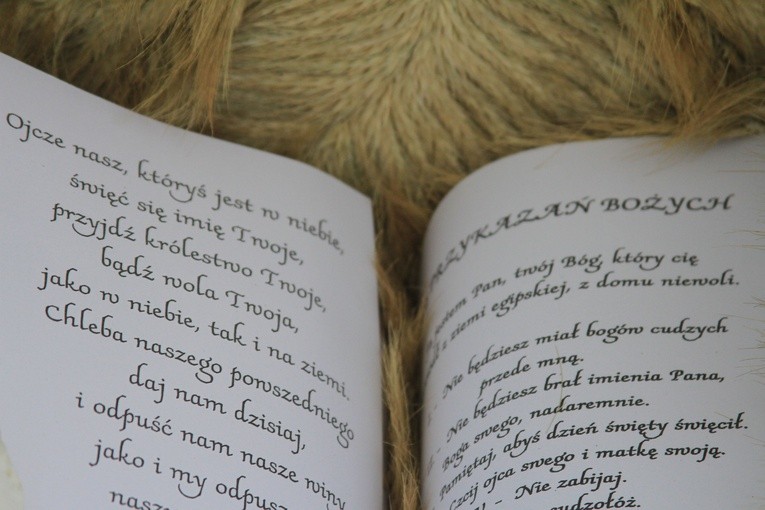 Ojcze nasz, któryś jest w niebie,
święć się imię Twoje,
przyjdź królestwo Twoje,
bądź wola Twoja,
jako w niebie, tak i na ziemi.
Chleba naszego powszedniego
daj nam dzisiaj,
i odpuść nam nasze winy
jako i my
PRZYKAZAŃ BOŻYCH
Pan, twój Bóg, który cię
z ziemi egipskiej, z domu niewoli.
- Nie będziesz miał bogów cudzych
przede mną.
- Nie będziesz brał imienia Pana,
Boga swego, nadaremnie.
Pamiętaj, abyś dzień święty święcił.
Czcij ojca swego i matkę swoją.
- Nie zabijaj.